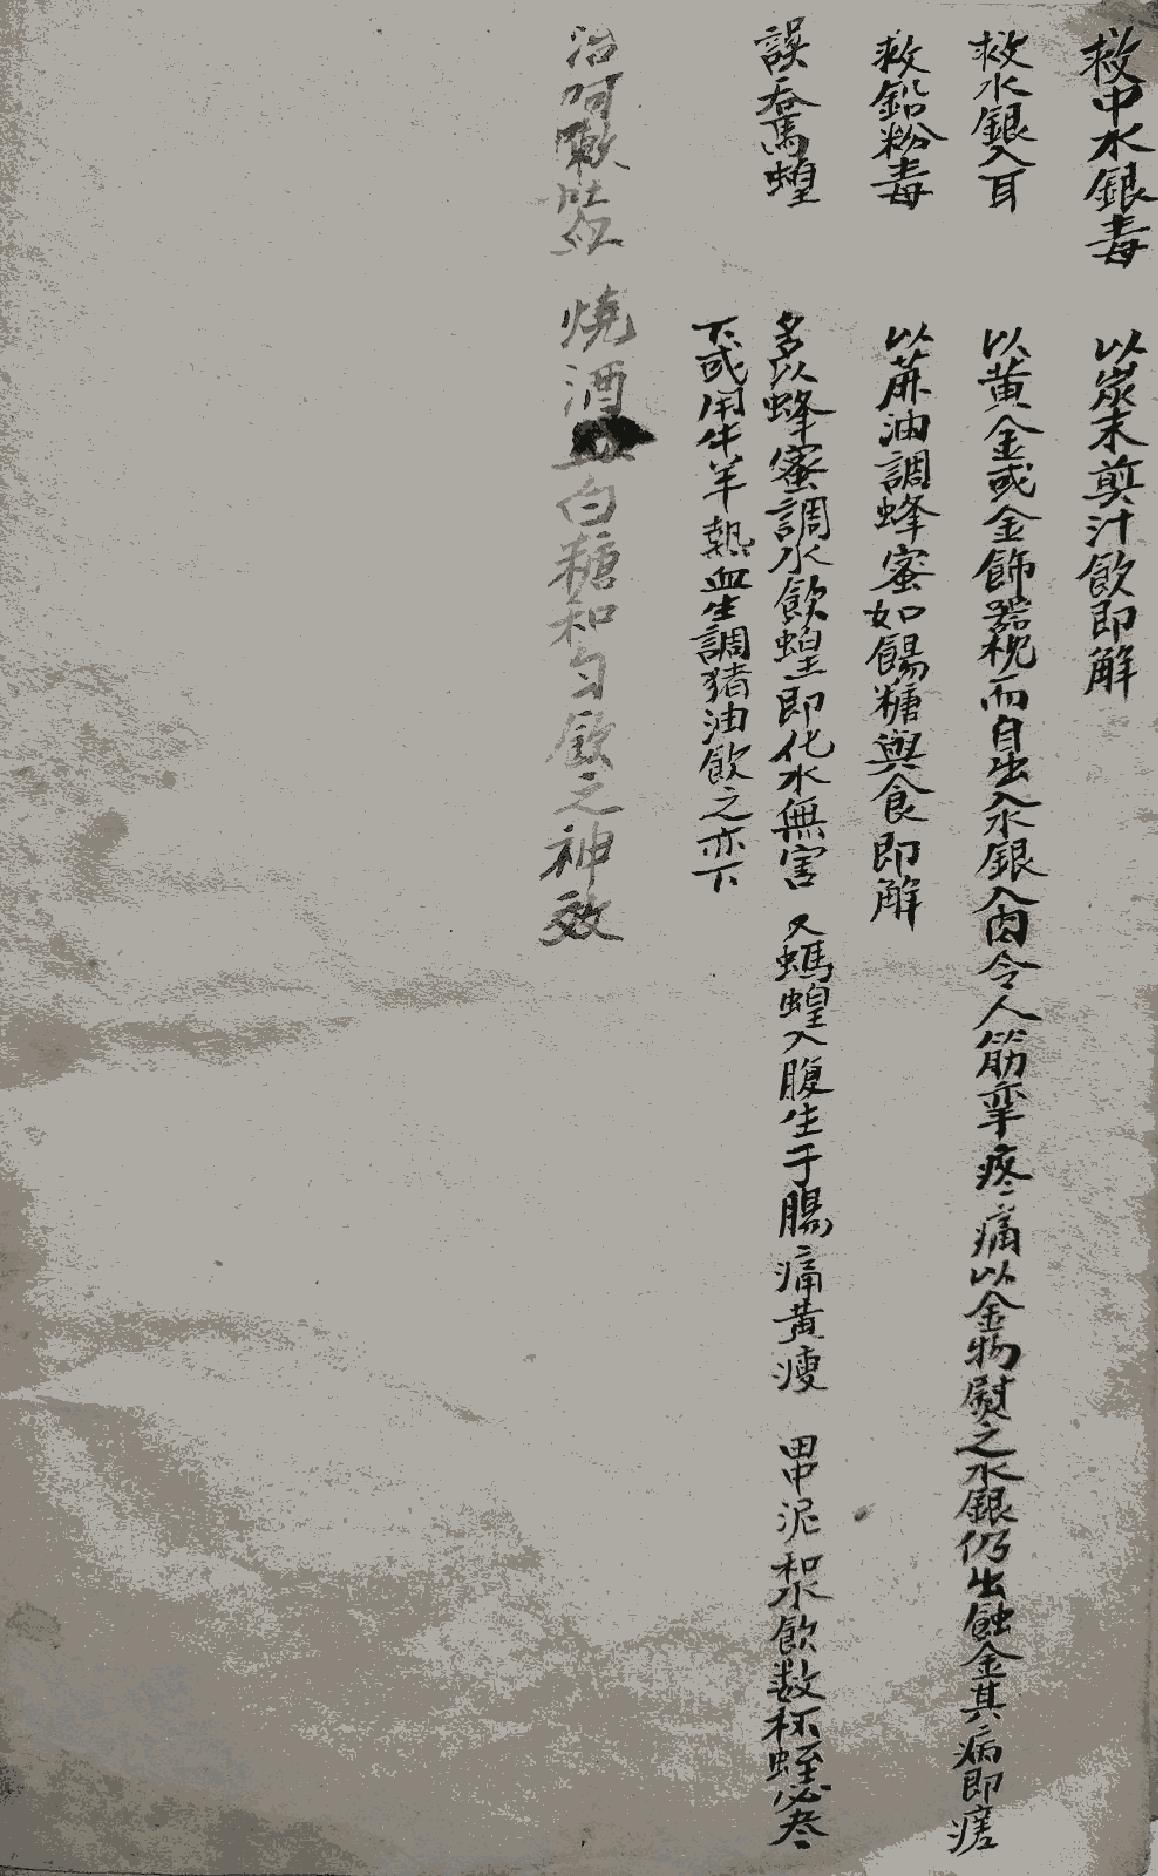 救中水銀毒 以炭末煎汁飲即解
救水銀入耳 以黃金或金飾器枕而自出 水銀入肉令人筋攣疼痛以金物熨之水銀仍出蝕金其病即瘥
救鉛粉毒 以蔴油調蜂蜜如餳糖與食即解
誤吞馬蝗 多以蜂蜜調水飲蝗即化水無害 又螞蝗入腹生于腸痛黃瘦 田中泥和水飲数杯蛭必尽
下或用牛羊熱血生調猪油飲之亦下
治呵嗽吐紅 燒酒 白糖和匀飲之神效